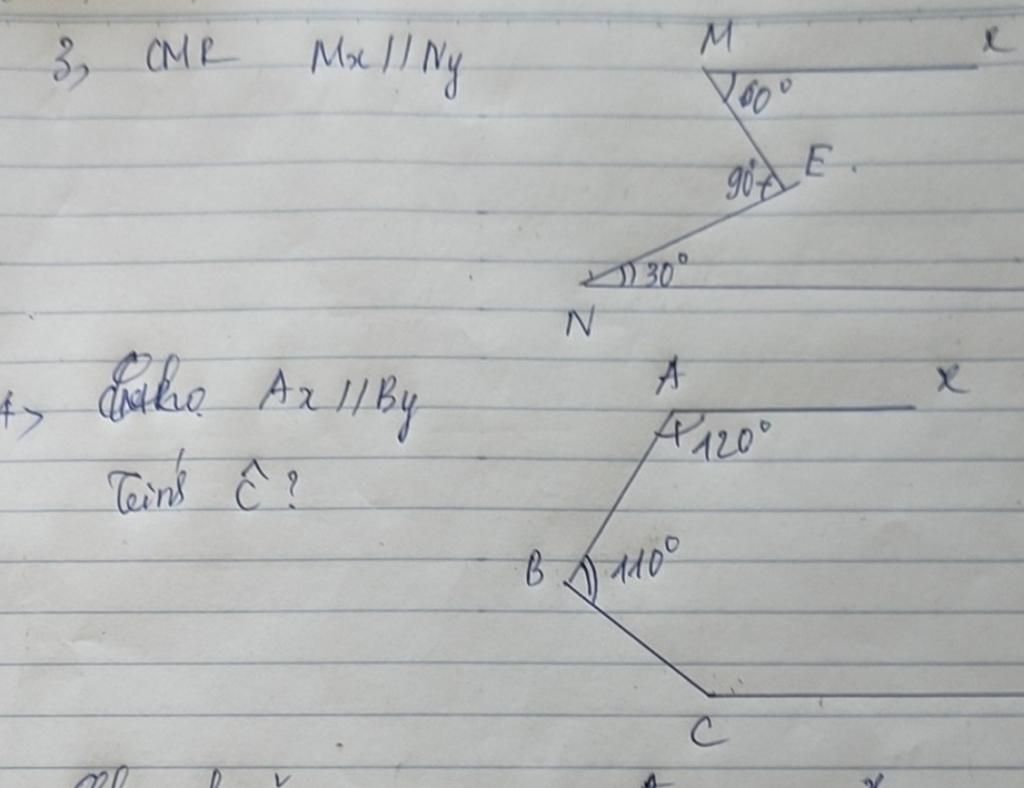 3, CMR Mx // Ny
M x
60°
90° E.
30°
N
4> Cho Ax // By
A x
120°
Tính Ĉ?
B 110°
C
A x